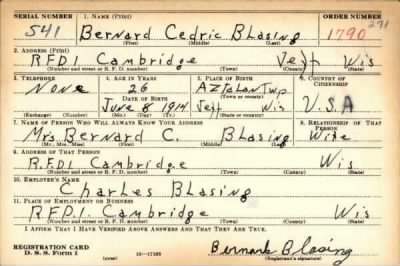 SERIAL NUMBER 1. NAME (Print) ORDER NUMBER
541 Bernard Cedric Blasing 1790 271
(First) (Middle) (Last)
2. ADDRESS (Print)
RFD1 Cambridge Jeff Wis
(Number and street or R. F. D. number) (Town) (County) (State)
3. TELEPHONE 4. AGE IN YEARS 5. PLACE OF BIRTH 6. COUNTRY OF CITIZENSHIP
None 26 Aztalan Twp.
DATE OF BIRTH (Town or county)
June 8 1914 Jeff Wis U.S.A
(Exchange) (Number) (Mo.) (Day) (Yr.) (State or country)
7. NAME OF PERSON WHO WILL ALWAYS KNOW YOUR ADDRESS 8. RELATIONSHIP OF THAT PERSON
Mrs Bernard C. Blasing Wife
(Mr., Mrs., Miss) (First) (Middle) (Last)
9. ADDRESS OF THAT PERSON
R.F.D1 Cambridge Wis
(Number and street or R. F. D. number) (Town) (County) (State)
10. EMPLOYER'S NAME
Charles Blasing
11. PLACE OF EMPLOYMENT OR BUSINESS
RFD1 Cambridge Wis
(Number and street or R. F. D. number) (Town) (County) (State)
I AFFIRM THAT I HAVE VERIFIED ABOVE ANSWERS AND THAT THEY ARE TRUE.
REGISTRATION CARD
D. S. S. Form 1 (over) 16-17105 Bernard Blasing
(Registrant's signature)